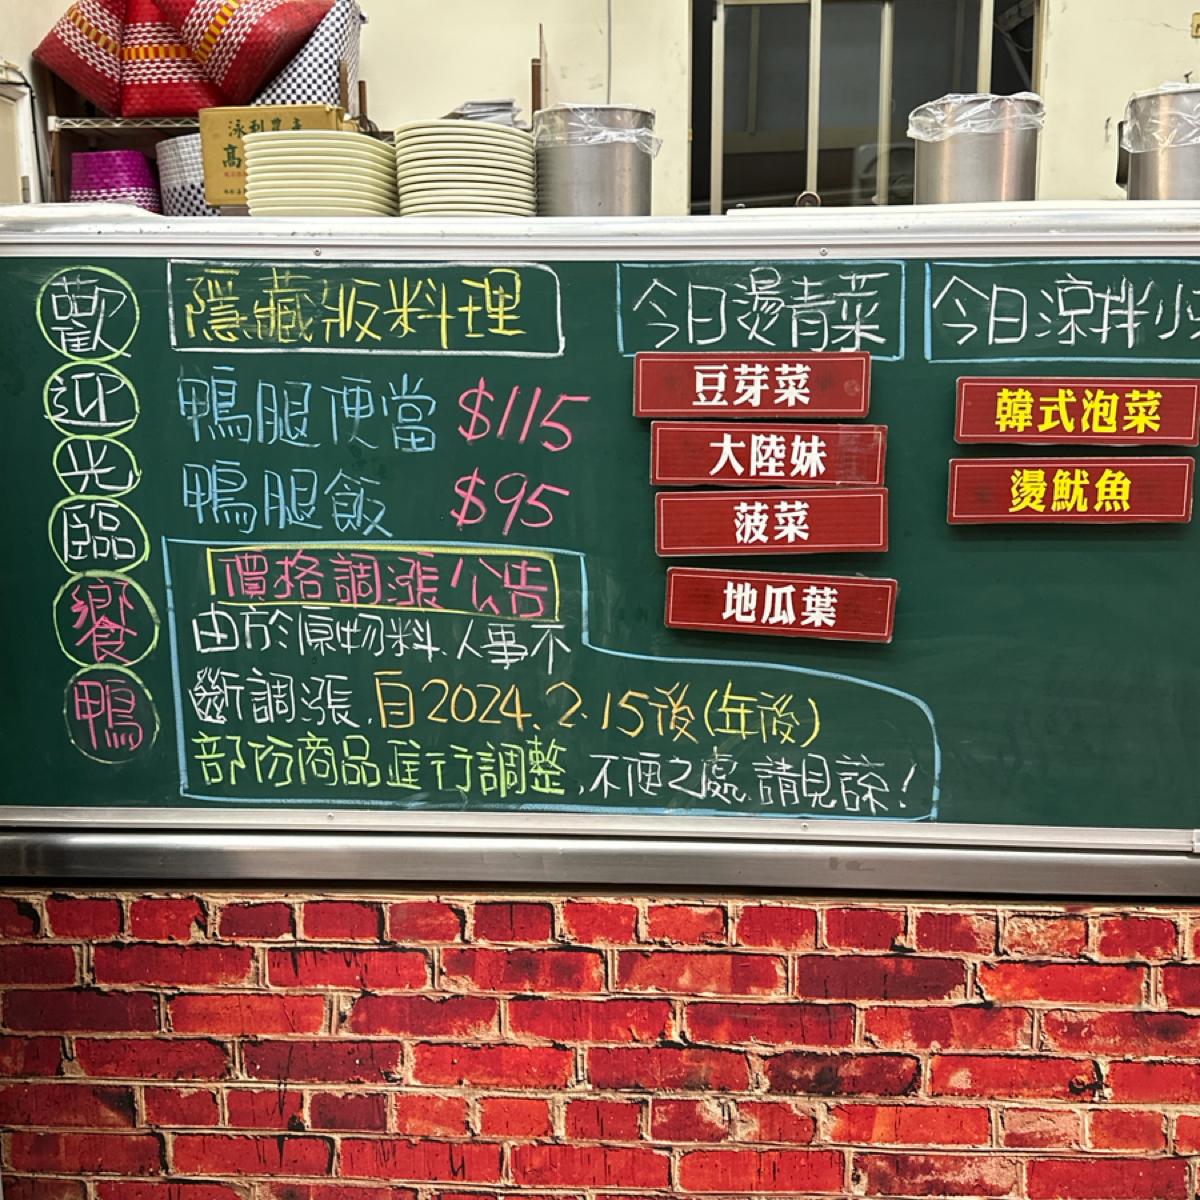 泳利農產
高
歡迎光臨饗鴨
隱藏版料理
鴨腿便當 $115
鴨腿飯 $95
價格調漲公告
由於原物料.人事不
斷調漲,自2024.2.15後(年後)
部份商品進行調整,不便之處.請見諒!
今日燙青菜
豆芽菜
大陸妹
菠菜
地瓜葉
今日涼拌小
韓式泡菜
燙魷魚